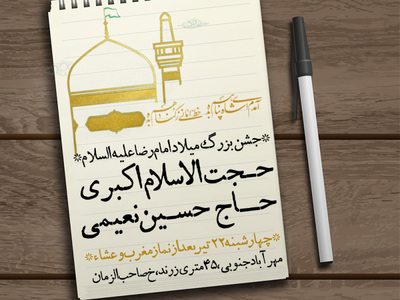 آمدم ای شاه پناهم بده
خط امانی ز گناهم بده
جشن بزرگ میلاد امام رضا علیه السلام
حجت الاسلام اکبری
حاج حسین نعیمی
چهارشنبه ۲۲ تیر بعد از نماز مغرب و عشاء
مهرآباد جنوبی، ۴۵ متری زرند، خ صاحب الزمان